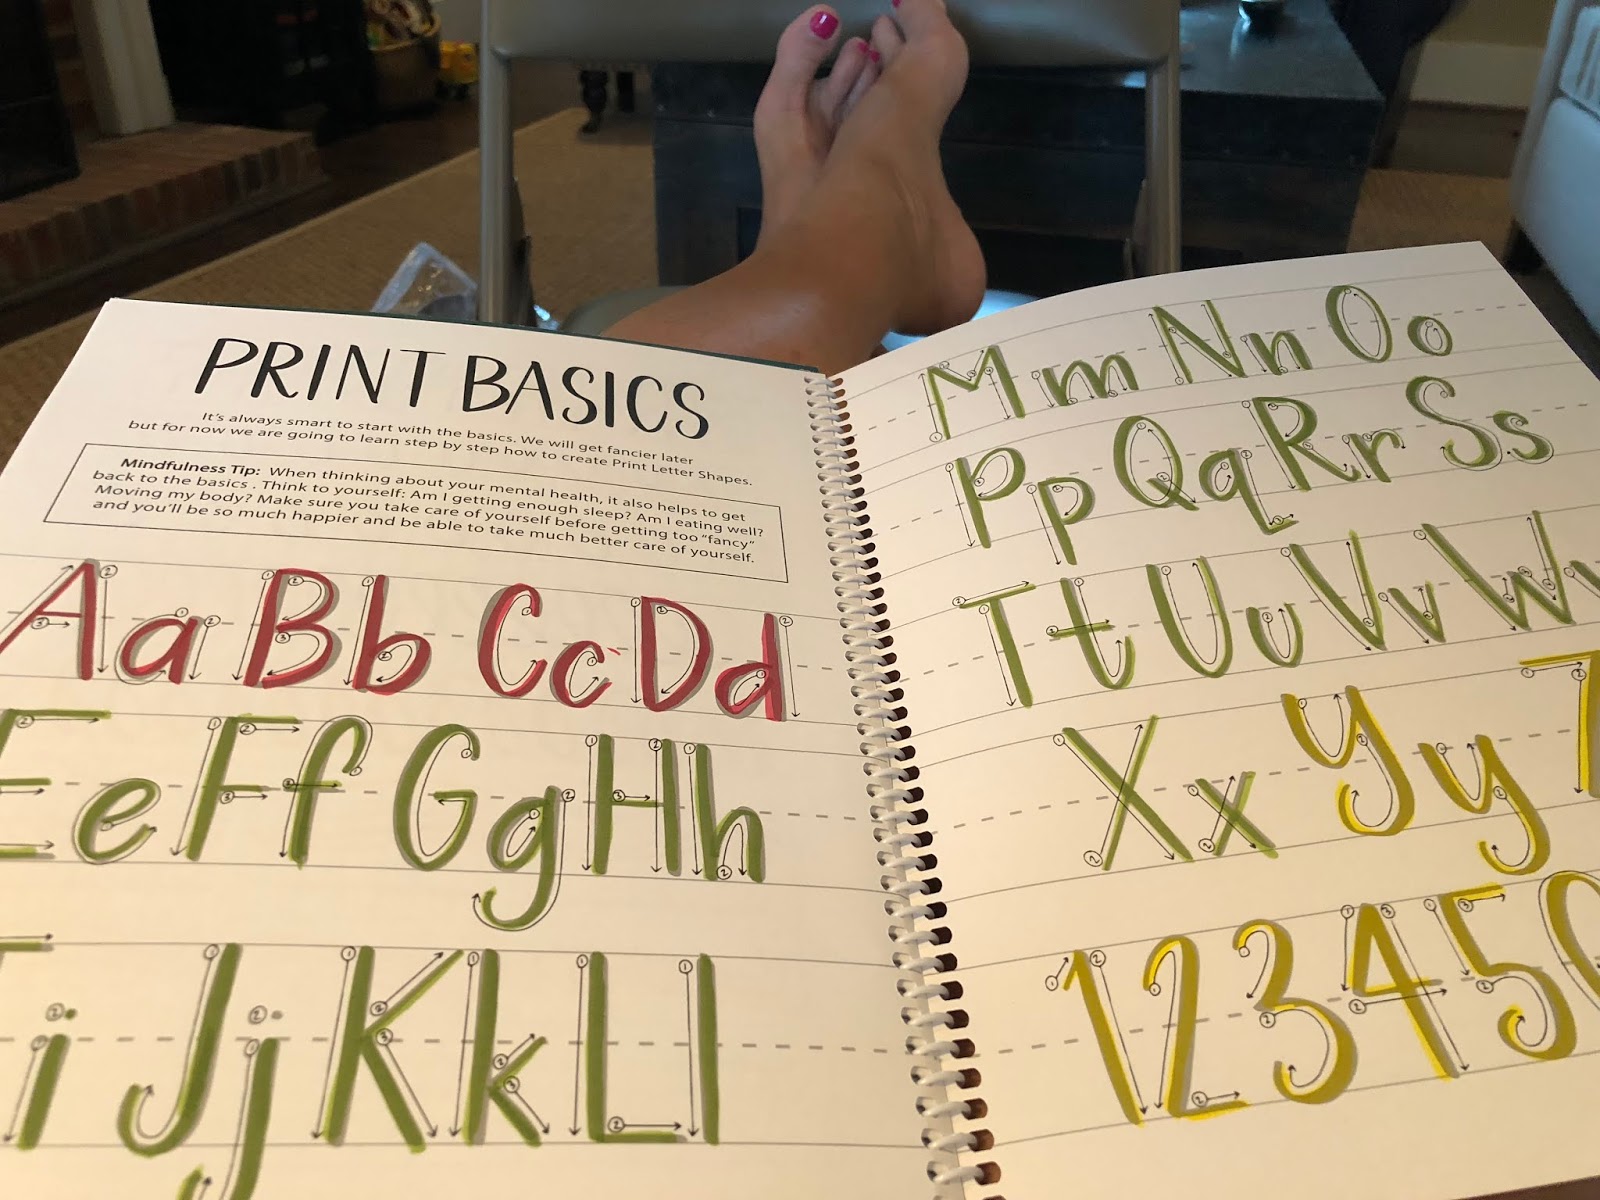 PRINT BASICS
It's always smart to start with the basics. We will get fancier later
but for now we are going to learn step by step how to create Print Letter Shapes.
Mindfulness Tip: When thinking about your mental health, it also helps to get
back to the basics . Think to yourself: Am I getting enough sleep? Am I eating well?
Moving my body? Make sure you take care of yourself before getting too "fancy"
and you'll be so much happier and be able to take much better care of yourself.
Aa Bb Cc Dd
Ee Ff Gg Hh
i Jj Kk Ll
Mm Nn Oo
Pp Qq Rr Ss
Tt Uu Vv Ww
Xx Yy Z
1 2 3 4 5